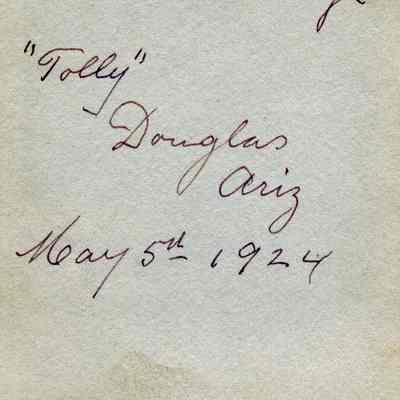 "Tolly"
Douglas
Ariz
May 5th 1924